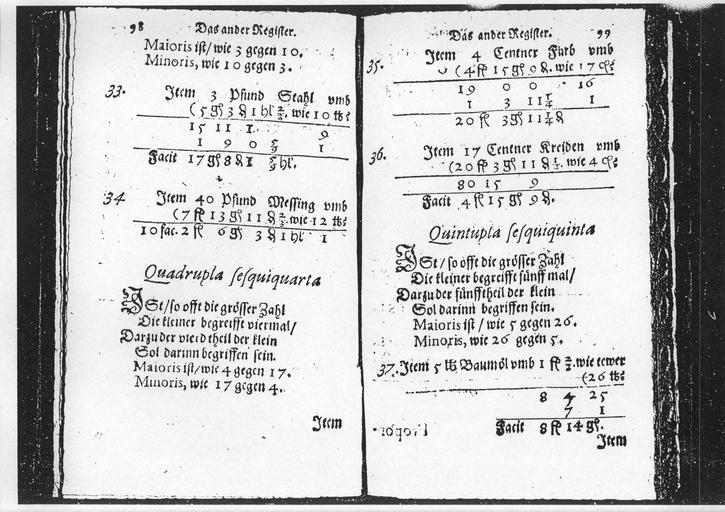 98 Das ander Register.
Maioris ist/ wie 3 gegen 10.
Minoris, wie 10 gegen 3.
33. Item 3 Pfund Stahl vmb
(5 gſ 3 ₰ 1 hl ⅔. wie 10 ℔?
15 11 1 9
1 9 0 5/9 1
Facit 17 gſ 8 ₰ 1 5/9 hl.
34 Item 40 Pfund Messing vmb
(7 fl 13 gſ 11 ₰ ⅔. wie 12 ℔?
10 fac. 2 fl 6 gſ 3 ₰ 1 hl 1
Quadrupla sesquiquarta
ISt/ so offt die grösser Zahl
Die kleiner begreifft viermal/
Darzu der vierd theil der klein
Sol darinn begriffen sein.
Maioris ist/ wie 4 gegen 17.
Minoris, wie 17 gegen 4.
Item
Das ander Register. 99
35. Item 4 Centner Farb vmb
(4 fl 15 gſ 9 ₰. wie 17 c?
19 0 0 16
1 3 11 ¼ 1
20 fl 3 gſ 11 ¼ ₰
36. Item 17 Centner Kreiden vmb
(20 fl 3 gſ 11 ₰ ¼. wie 4 c?
80 15 9
Facit 4 fl 15 gſ 9 ₰.
Quintupla sesquiquinta
ISt/ so offt die grösser Zahl
Die kleiner begreifft fünff mal/
Darzu der fünfftheil der klein
Sol darinn begriffen sein.
Maioris ist / wie 5 gegen 26.
Minoris, wie 26 gegen 5.
37. Item 5 ℔ Baumöl vmb 1 fl ⅔. wie tewer
(26 ℔?
8 4 25
7 1
Facit 8 fl 14 gſ.
Item